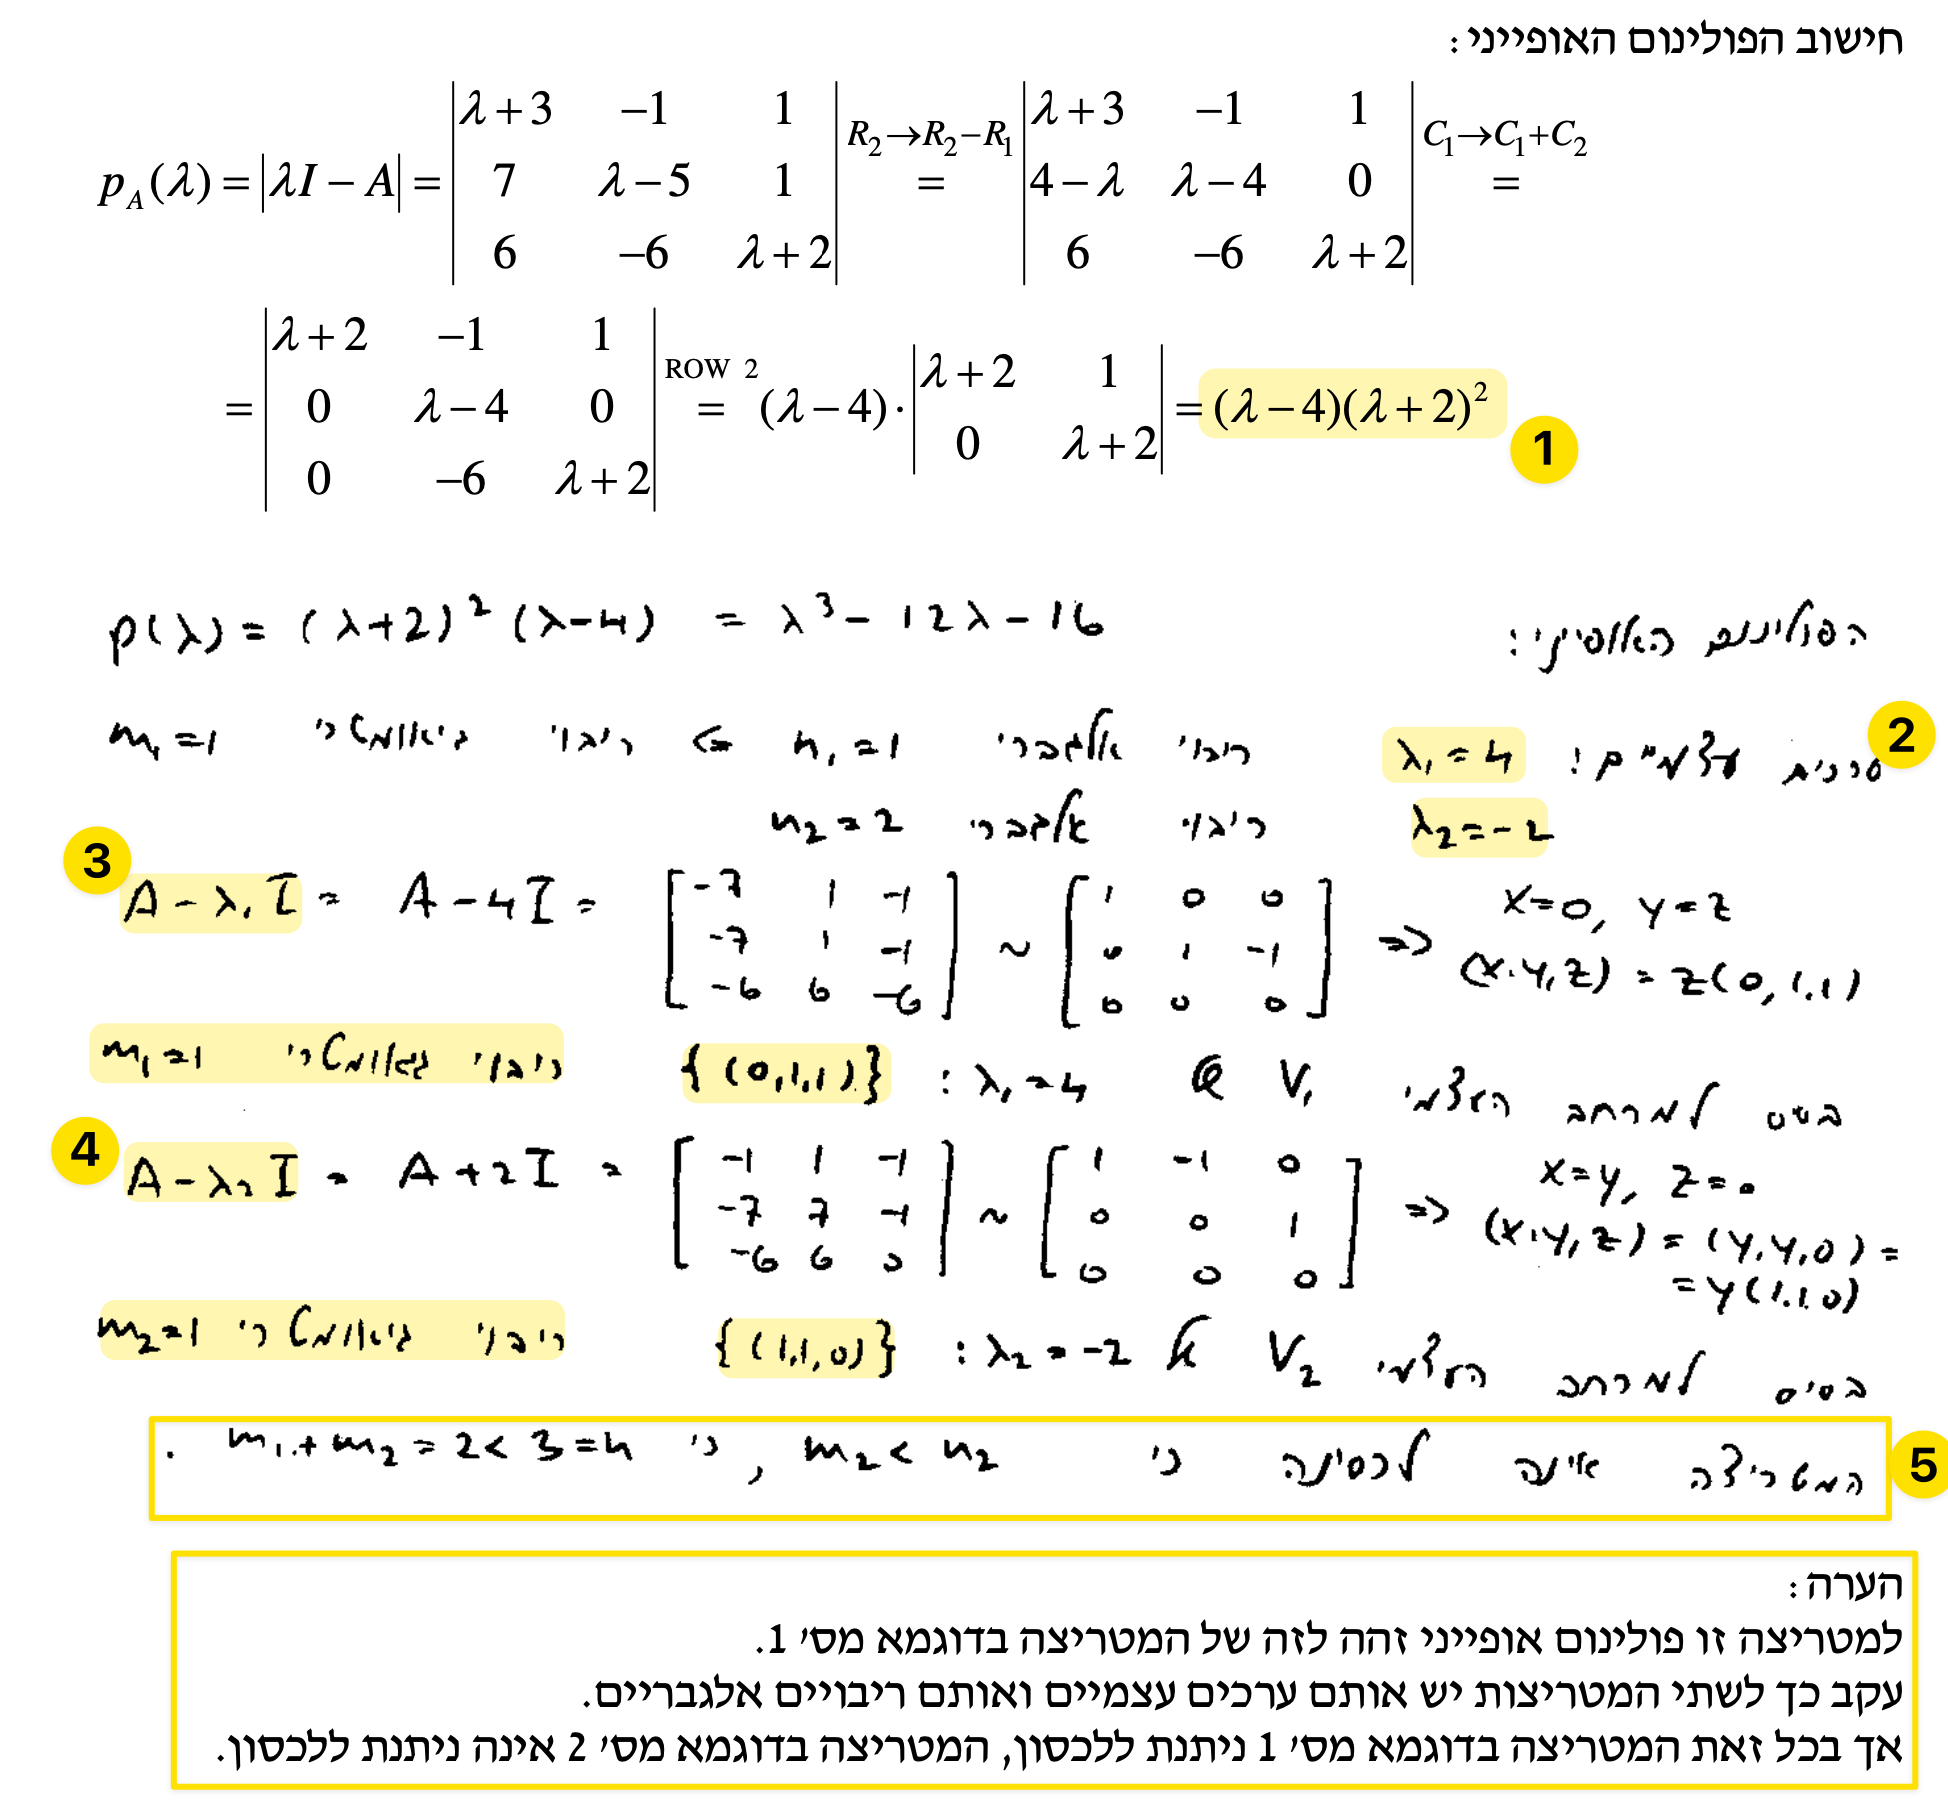 חישוב הפולינום האופייני:
p_A(λ) = |λI − A| = |λ+3 −1 1; 7 λ−5 1; 6 −6 λ+2| R₂→R₂−R₁ = |λ+3 −1 1; 4−λ λ−4 0; 6 −6 λ+2| C₁→C₁+C₂ =
= |λ+2 −1 1; 0 λ−4 0; 0 −6 λ+2| ROW 2 = (λ−4)·|λ+2 1; 0 λ+2| = (λ−4)(λ+2)²
1
הפולינום האופייני: p(λ) = (λ+2)²(λ−4) = λ³ − 12λ − 16
2
ערכים עצמיים: λ₁ = 4 ריבוי אלגברי n₁ = 1 <= ריבוי גיאומטרי m₁ = 1
λ₂ = −2 ריבוי אלגברי n₂ = 2
3
A − λ₁I = A − 4I = [−7 1 −1; −7 1 −1; −6 6 −6] ~ [1 0 0; 0 1 −1; 0 0 0] => x=0, y=z
(x,y,z) = z(0,1,1)
בסיס למרחב העצמי V₁ של λ₁=4 : {(0,1,1)} ריבוי גיאומטרי m₁=1
4
A − λ₂I = A + 2I = [−1 1 −1; −7 7 −1; −6 6 0] ~ [1 −1 0; 0 0 1; 0 0 0] => x=y, z=0
(x,y,z) = (y,y,0) =
= y(1,1,0)
בסיס למרחב העצמי V₂ של λ₂=−2 : {(1,1,0)} ריבוי גיאומטרי m₂=1
5
המטריצה אינה לכסינה כי m₂ < n₂, כי m₁+m₂ = 2 < 3 = n .
הערה:
למטריצה זו פולינום אופייני זהה לזה של המטריצה בדוגמא מס׳ 1.
עקב כך לשתי המטריצות יש אותם ערכים עצמיים ואותם ריבויים אלגבריים.
אך בכל זאת המטריצה בדוגמא מס׳ 1 ניתנת ללכסון, המטריצה בדוגמא מס׳ 2 אינה ניתנת ללכסון.